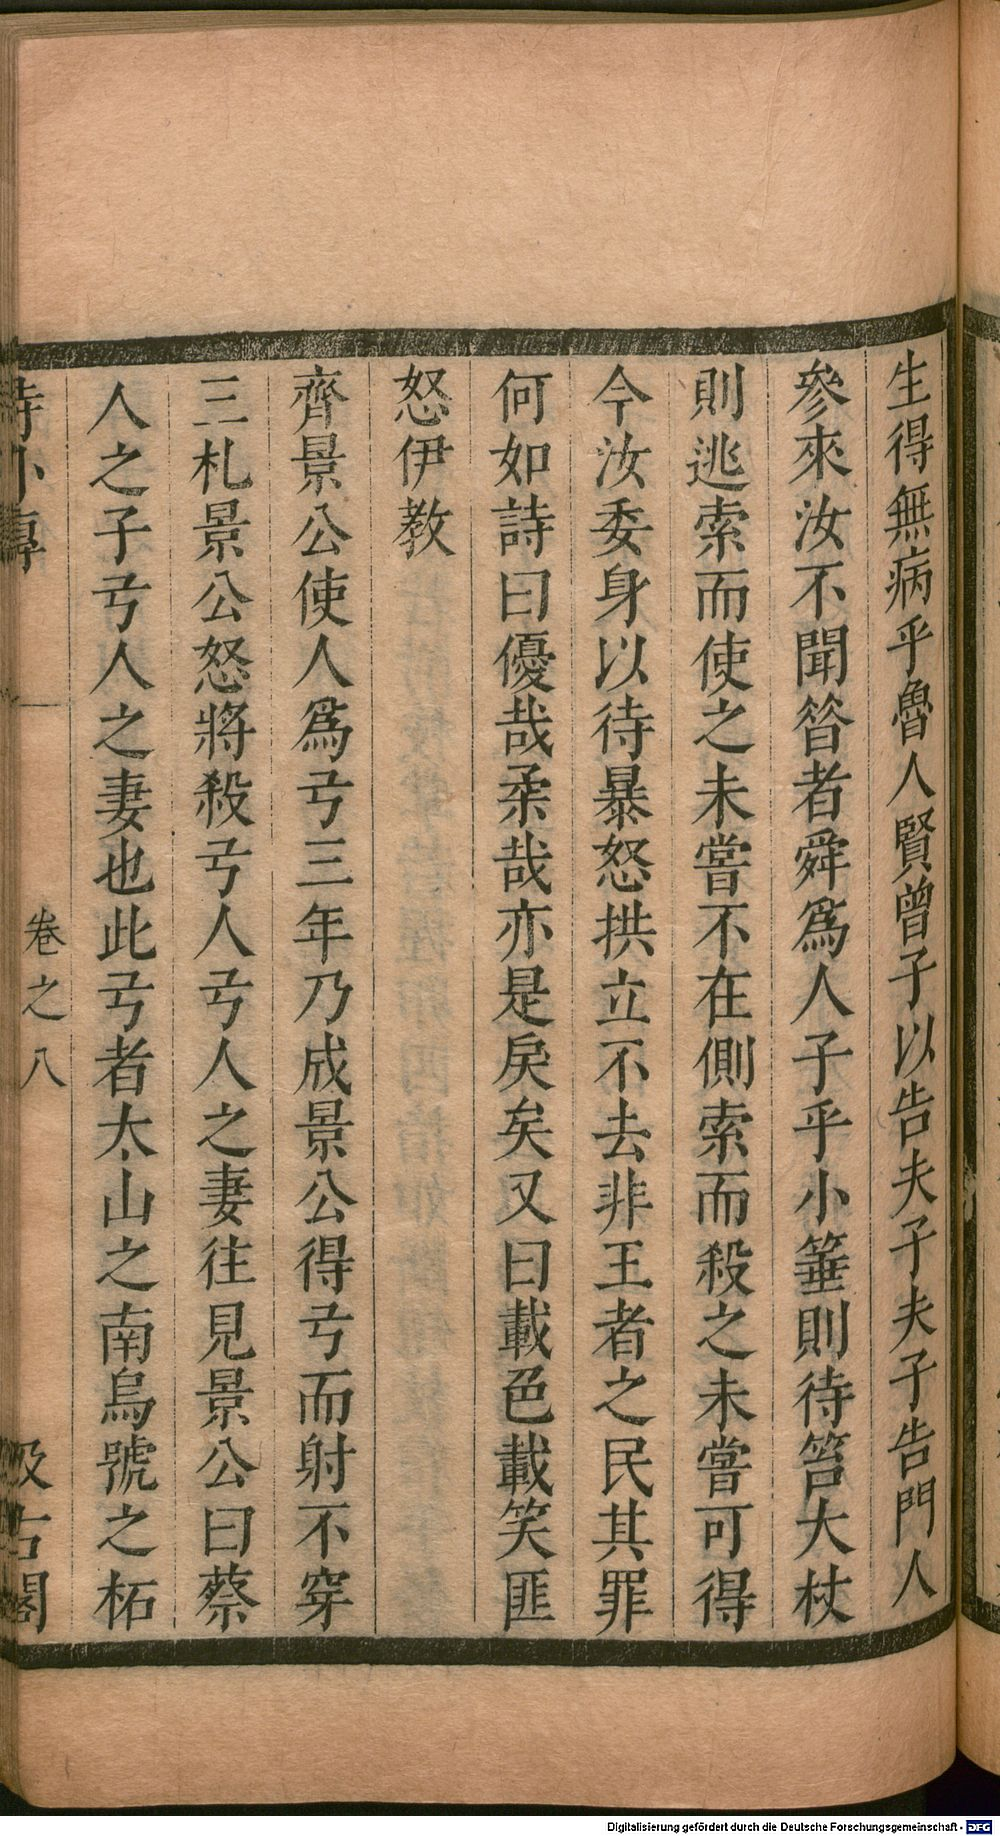 生得無病乎魯人賢曾子以告夫子夫子告門人
參來汝不聞昝者舜爲人子乎小箠則待笞大杖
則逃索而使之未嘗不在側索而殺之未嘗可得
今汝委身以待暴怒拱立不去非王者之民其罪
何如詩曰優哉柔哉亦是戾矣又曰載色載笑匪
怒伊教
齊景公使人爲弓三年乃成景公得弓而射不穿
三札景公怒將殺弓人弓人之妻往見景公曰蔡
人之子弓人之妻也此弓者太山之南烏號之柘
詩外傳
卷之八
汲古閣
Digitalisierung gefördert durch die Deutsche Forschungsgemeinschaft - DFG